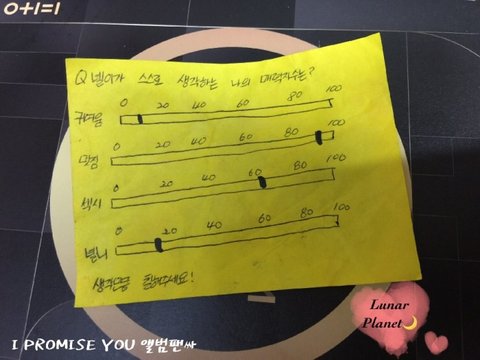 0+1=1
Q 넬이가 스스로 생각하는 나의 매력지수는?
0 20 40 60 80 100
귀여움
0 20 40 60 80 100
멋짐
0 20 40 60 80 100
섹시
0 20 40 60 80 100
생각만큼 칠해주세요!
Lunar
Planet🌙
I PROMISE YOU 앨범팬싸